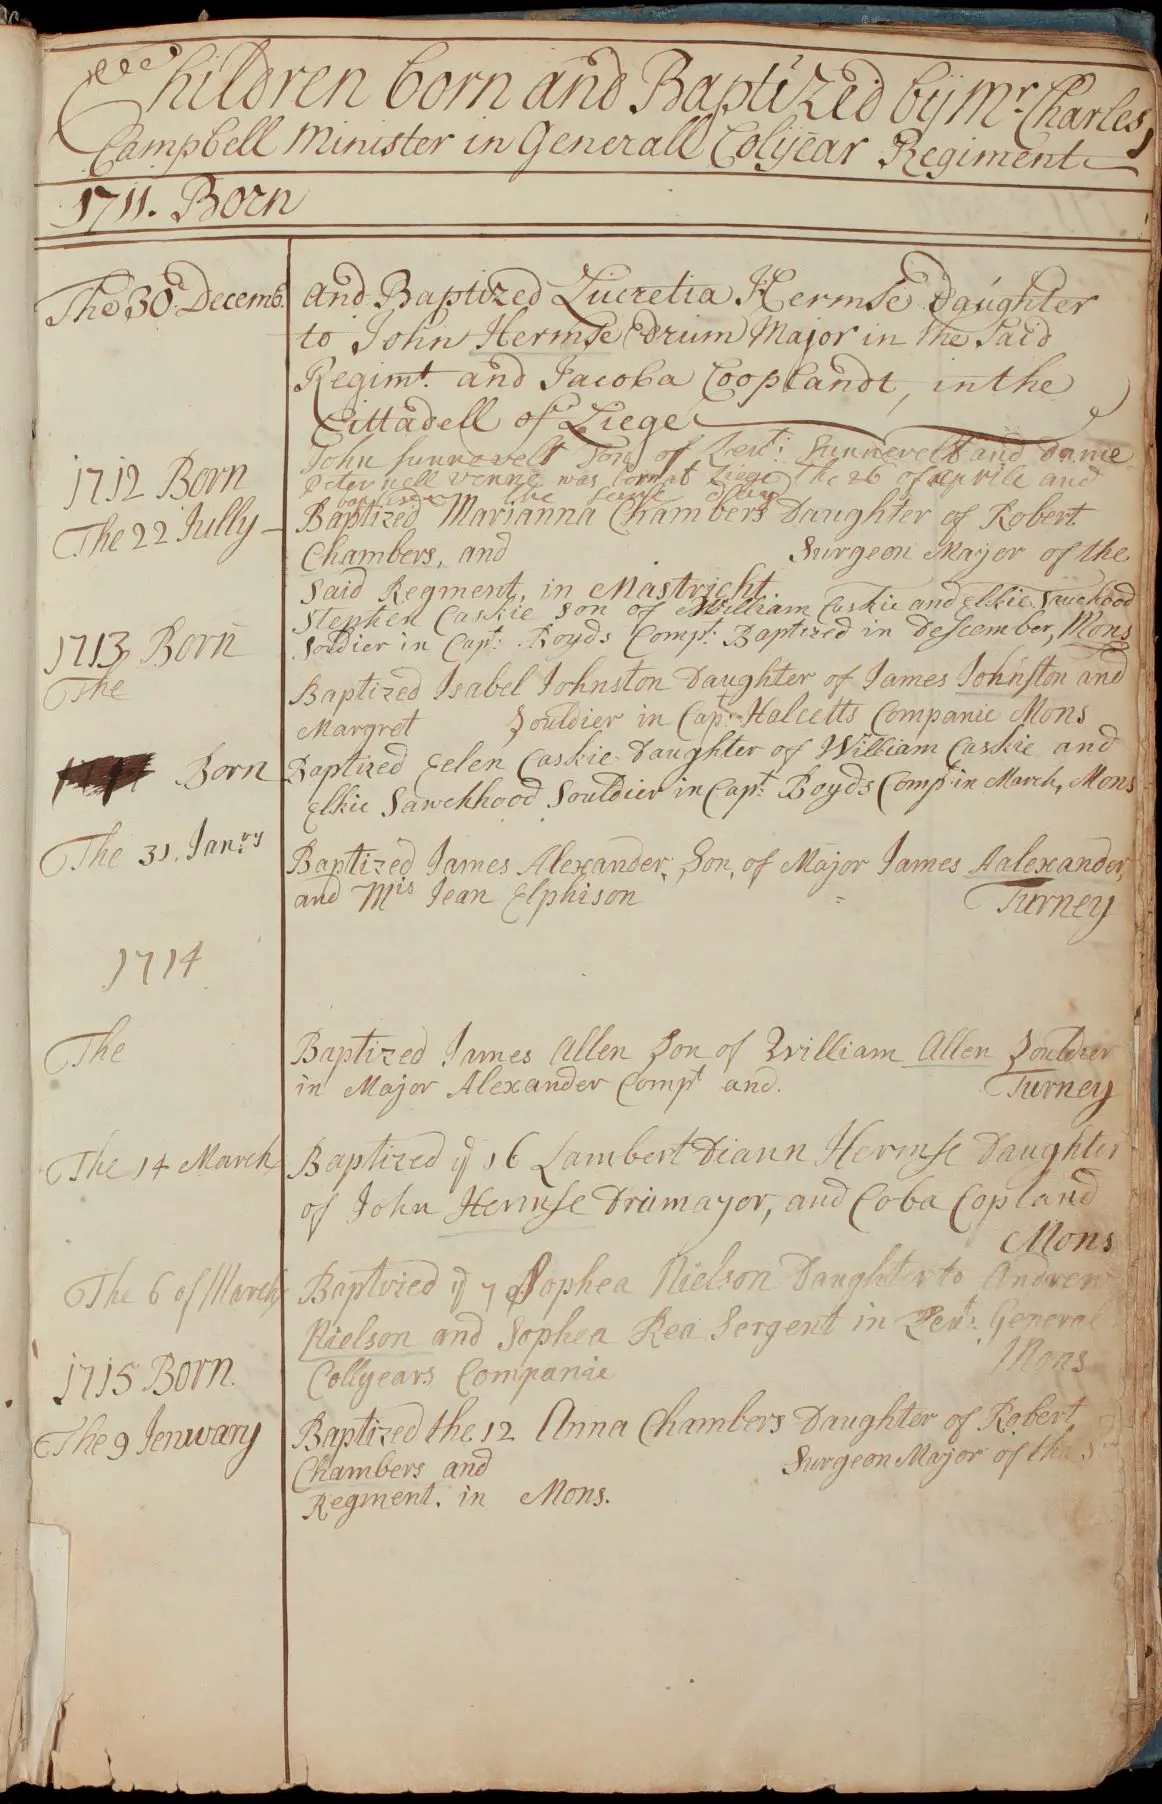 Children born and Baptized by Mr. Charles
Campbell Minister in Generall Colijear Regiment
1711. Born
The 30 Decemb. and Baptized Lucretia Hermse Daughter
to John Hermse Drum Major in the Said
Regimt. and Jacoba Cooplandt, in the
Cittadell of Liege
John Sunnevelt Son of Leut: Sunnevelt and Dame
1712 Born
venne was born at Liege The 26 of aprile and
the same day
The 22 Jully Baptized Marianna Chambers Daughter of Robert
Chambers, and Surgeon Major of the
Said Regment, in Mastricht.
Stephen Caskie Son of William Caskie and Elkie Sawchood
1713 Born
Souldier in Capt: Boyds Compt: Baptized in Descember, Mons
The Baptized Isabel Johnston Daughter of James Johnston and
Margret Souldier in Capt: Halcetts Companie Mons
Born Baptized Eelen Caskie Daughter of William Caskie and
Elkie Sawchhood Souldier in Capt: Boyds Comp in March, Mons
The 31. Janry Baptized James Alexander, Son, of Major James Aalexander,
and Mis Jean Elphison Turney
1714
The Baptized James Allen Son of William Allen Souldier
in Major Alexander Compt and. Turney
The 14 March Baptized ij 16 Lambert Diann Hermse Daughter
of John Hermse Drumayor, and Coba Copland
Mons
The 6 of March Baptized ij 7 Sophea Nielson Daughter to Andrew
Nielson and Sophea Rea Sergent in Leut: General
Collyears Companie Mons
1715 Born.
The 9 Jenuary Baptized the 12 Anna Chambers Daughter of Robert
Chambers and Surgeon Major of the
Regment. in Mons.